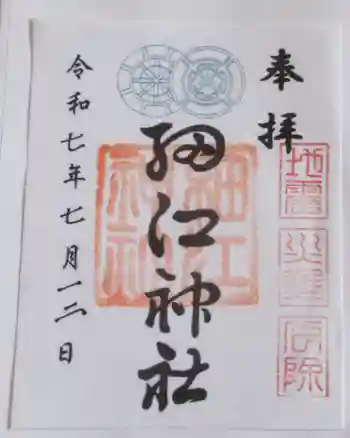 奉拝
地震
厄除
細江神社
細江
神社
令和七年七月一二日